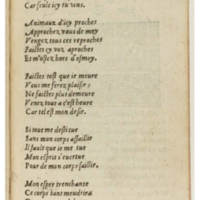 Car seule icy tu vins.
Animaux d'icy proches
Approchez, vous de moy
Vengez, tous ces reproches
Faictes cy voz aproches
Et m'ostez hors d'esmoy.
Faictes tost que ie meure
Vous me ferez plaisir;
Ne faictes plus demeure
Venez, tous a c'est heure
Car tel est mon desir.
Si nul ne destitue
Sans mon corps assaillir
Il fault que ie me tue
Mon esprit s'euertue
Pour de mon corps saillir.
Mon espee trenchante
Ce corps bans meudrira